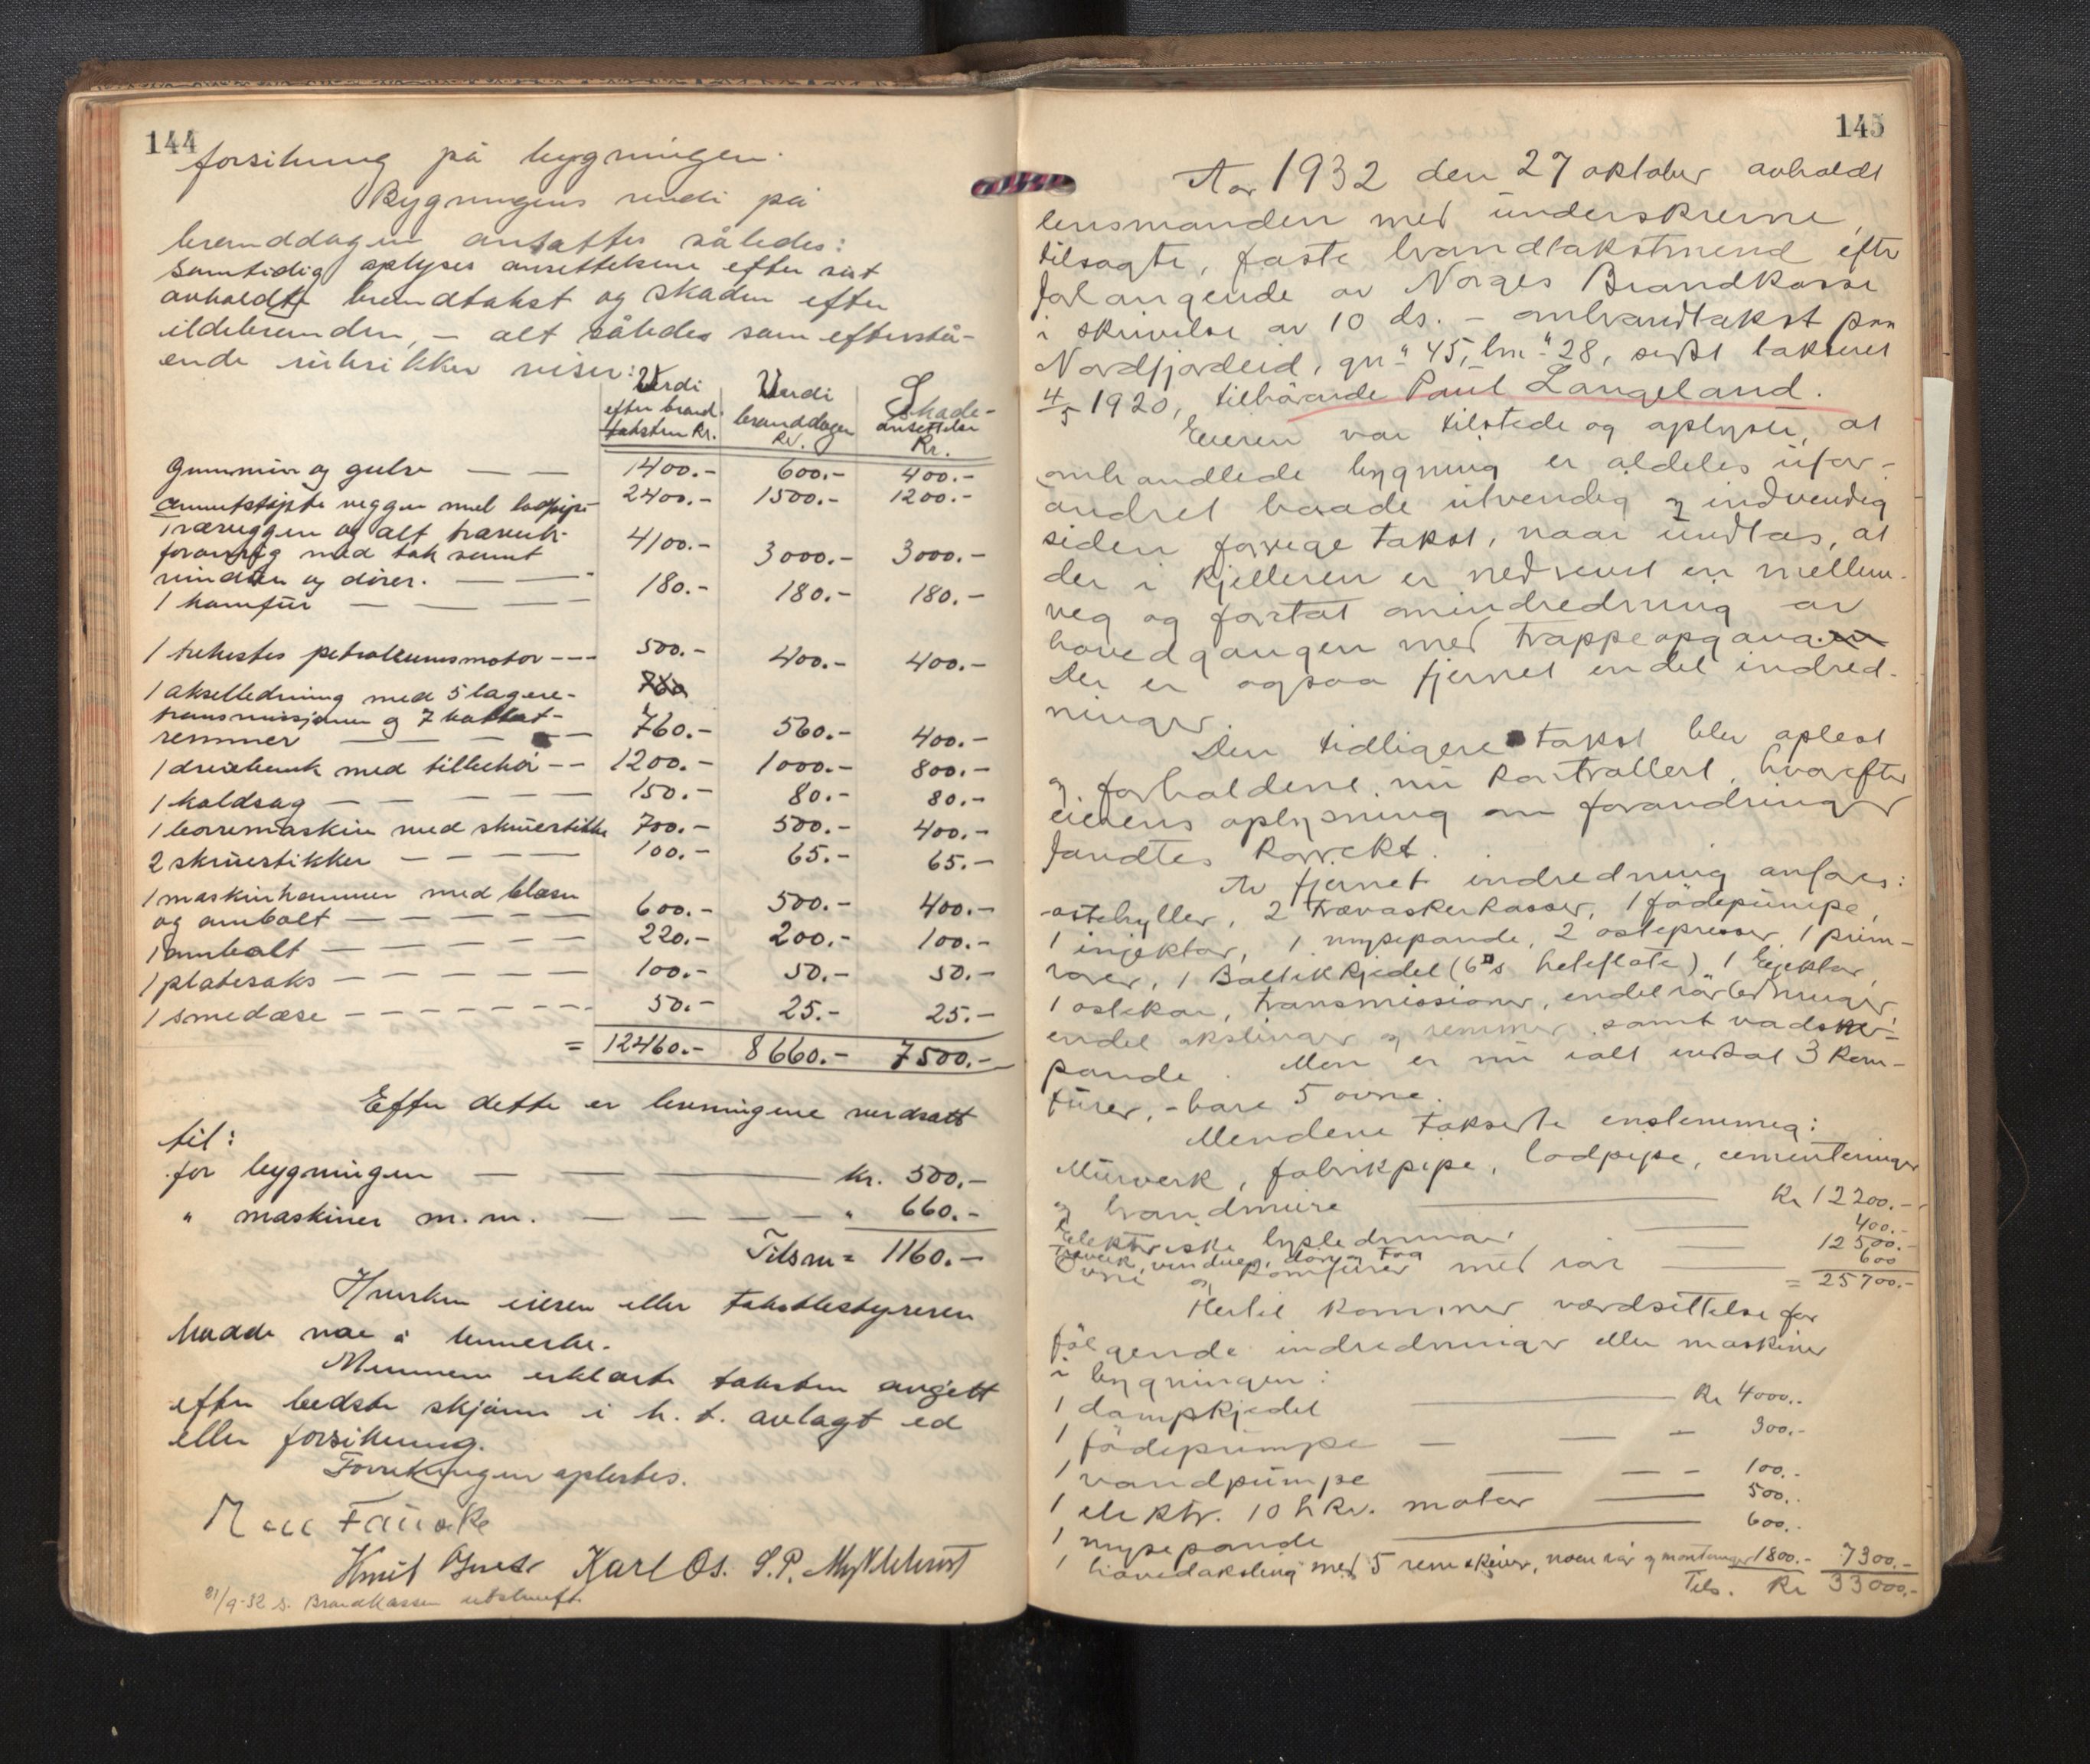 144
forsikring på bygningen.
Bygningens verdi på
branddagen ansattes således:
Samtidig oplyses ansettelsene efter sist
avholdte brandtakst og skaden efter
ildebranden, – alt således som efterstå-
ende rubrikker viser:
Verdi efter brand-taksten Kr. | Verdi branddagen Kr. | Skade-ansettelse Kr.
Grunnmur og gulv — — 1400.- 600.- 400.-
Cementstøpte vegger med lodpipe 2400.- 1500.- 1200.-
Trævegger og alt træverk
forøvrig med tak samt 4100.- 3000.- 3000.-
vinduer og dører. — —
1 komfur — — — 180.- 180.- 180.-
1 hestes petroleumsmotor --- 500.- 400.- 400.-
1 akselledning med 5 lagere- 760
transmissjoner og 7
remmer — — — 760.- 560.- 400.-
1 dreiebenk med tilbehør -- 1200.- 1000.- 800.-
1 koldsag — — — 150.- 80.- 80.-
1 borremaskin med skruestikke 700.- 500.- 400.-
2 skruestikker — — — 100.- 65.- 65.-
1 maskinhammer med
og ambolt — — — 600.- 500.- 400.-
1 ambolt — — — 220.- 200.- 100.-
1 platesaks — — — 100.- 50.- 50.-
1 smedæse — — — 50.- 25.- 25.-
= 12460.- 8660.- 7500.-
Efter dette er levningene verdsatt
til:
for bygningen — — — kr. 500.-
" maskiner m.m. — — — " 660.-
Tilsm = 1160.-
Hverken eieren eller takstbestyreren
hadde noe å bemerke.
Mennene erklærte taksten avgitt
efter bedste skjønn i h. t. avlagt ed
eller forsikring.
Forretningen oplestes.
Fauske
Knut Karl Os. S. P. Myklebust
21/9-32 s. Brandkassen utskrift.
145
Aar 1932 den 27 oktober avholdt
lensmanden med underskrevne,
tilsagte, faste brandtakstmend efter
forlangende av Norges Brandkasse
i skrivelse av 10 ds. – ombrandtakst paa
Nordfjordeid, gn" 45, bn" 28, sidst taksert
4/5 1920, tilhørende Paul Langeland.
Eieren var tilstede og oplyste, at
omhandlede bygning er aldeles ufor-
andret baade utvendig og indvendig
siden forrige takst, naar undtas, at
der i kjelleren er nedrevet en mellem-
veg og foretat omindredning av
hovedgangen med trappeopgang.en
Der er ogsaa fjernet endel indred-
ninger.
Den tidligere takst blev oplest
og forholdene nu kontrollert, hvorefter
eierens oplysning om forandringer
fandtes korrekt.
Av fjernet indredning anføres:
ostehyller, 2 trævaskerkasser, 1 fødepumpe,
1 injektor, 1 mysepande, 2 ostepresser, 1 prim-
rører, 1 Baltikkjedel (6 s heteflate), 1 Ejektor,
1 ostekar, transmissioner, endel rørledninger,
endel akslinger og remmer samt vadsker-
pande. Men er nu ialt indsat 3 kom-
fürer, – bare 5 ovne.
Mendene takserte enstemmig:
Murverk, fabrikpipe, lodpipe, cementeringer
og brandmure — Kr 12200.-
Elektriske lysledninger — 400.-
Træverk, vinduer, dører, tag 12500.-
Ovne og komfürer med rør — 600
= 25700.-
Hertil kommer værdsettelse for
følgende indredninger eller maskiner
i bygningen:
1 dampkjedel — Kr 4000.-
1 fødepumpe — — — 300.-
1 vandpumpe — — — 100.-
1 elektr. 10 hkr. motor — 500.-
1 mysepande — 600.-
1 hovedaksling med 5 remskiver, noen rør og monteringer 1800.- 7300.-
Tils. Kr 33000.-